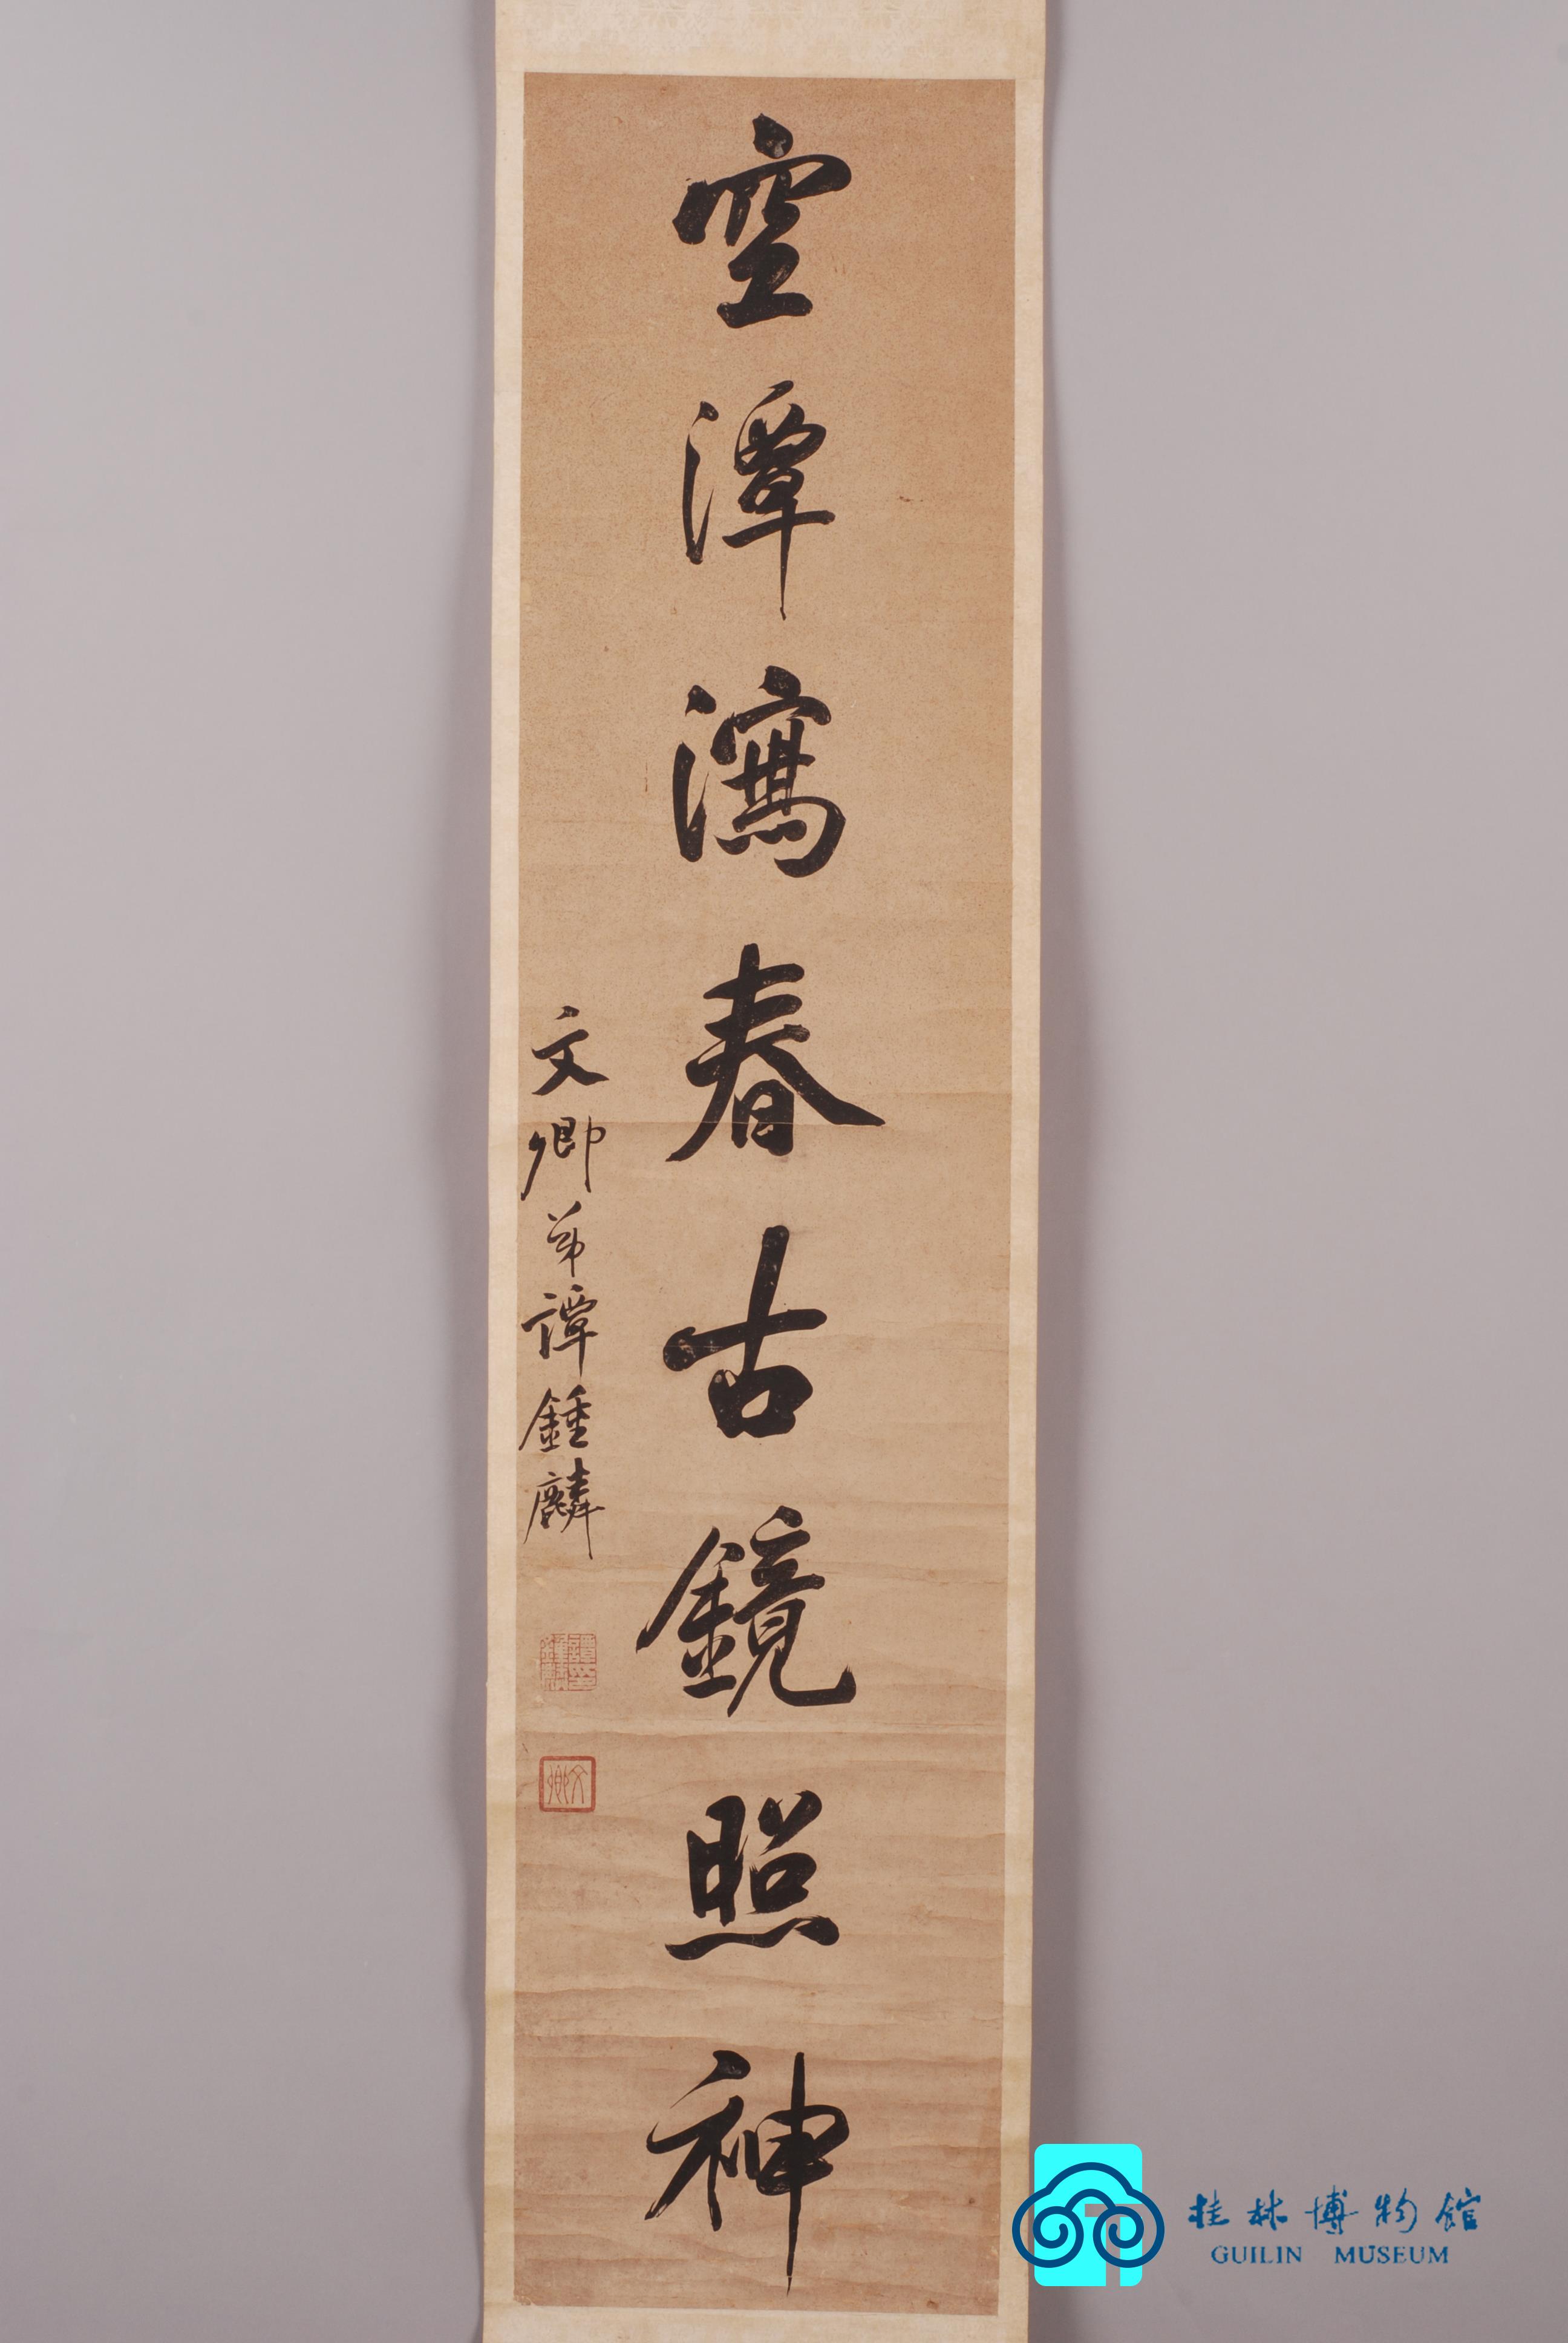 空潭瀉春古鏡照神
文卿弟譚鍾麟
文卿
桂林博物館
GUILIN MUSEUM